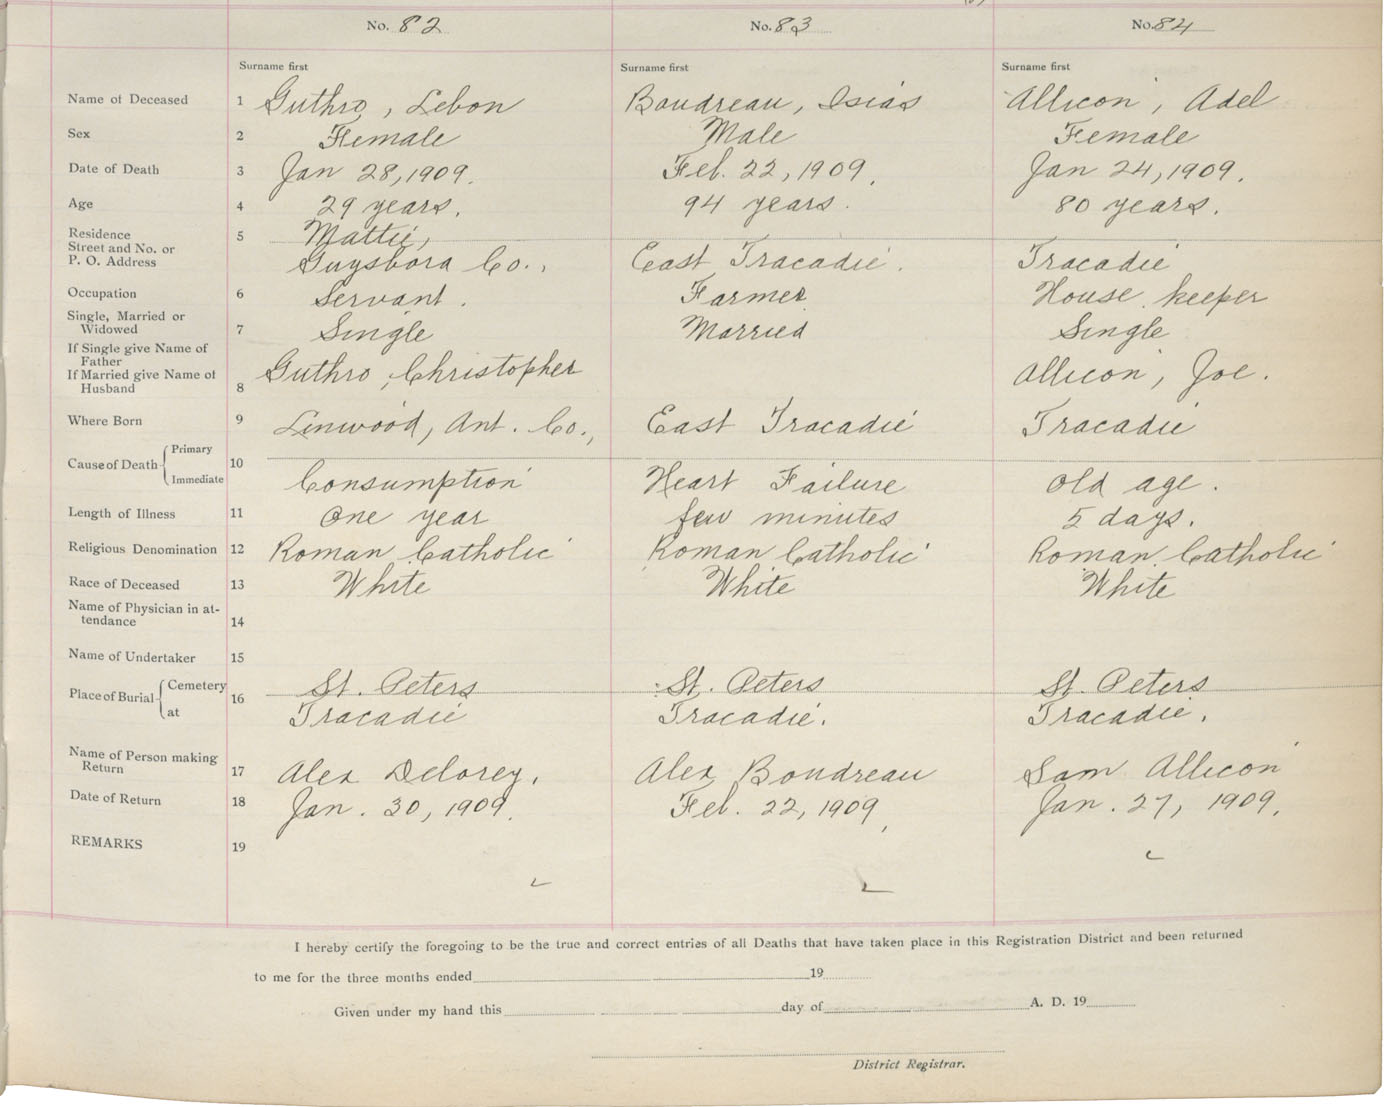 No. 82 No. 83 No. 84
Surname first Surname first Surname first
Name of Deceased 1 Guthro, Lebon Boudreau, Isias Allicon, Adel
Sex 2 Female Male Female
Date of Death 3 Jan 28, 1909. Feb. 22, 1909. Jan 24, 1909.
Age 4 29 years. 94 years. 80 years.
Residence 5 Mattie,
Street and No. or
P. O. Address Guysboro Co., East Tracadie. Tracadie
Occupation 6 Servant. Farmer House keeper
Single, Married or
Widowed 7 Single Married Single
If Single give Name of
Father
If Married give Name of
Husband 8 Guthro, Christopher Allicon, Joe.
Where Born 9 Linwood, Ant. Co., East Tracadie Tracadie
Cause of Death Primary
Immediate 10 Consumption Heart Failure old age.
Length of Illness 11 One year few minutes 5 days.
Religious Denomination 12 Roman Catholic Roman Catholic Roman Catholic
Race of Deceased 13 White White White
Name of Physician in at-
tendance 14
Name of Undertaker 15
Place of Burial Cemetery 16 St. Peters St. Peters St. Peters
at Tracadie Tracadie. Tracadie.
Name of Person making
Return 17 Alex Delorey. Alex Boudreau Sam Allicon
Date of Return 18 Jan. 30, 1909. Feb. 22, 1909. Jan. 27, 1909.
REMARKS 19
I hereby certify the foregoing to be the true and correct entries of all Deaths that have taken place in this Registration District and been returned
to me for the three months ended 19
Given under my hand this day of A. D. 19
District Registrar.